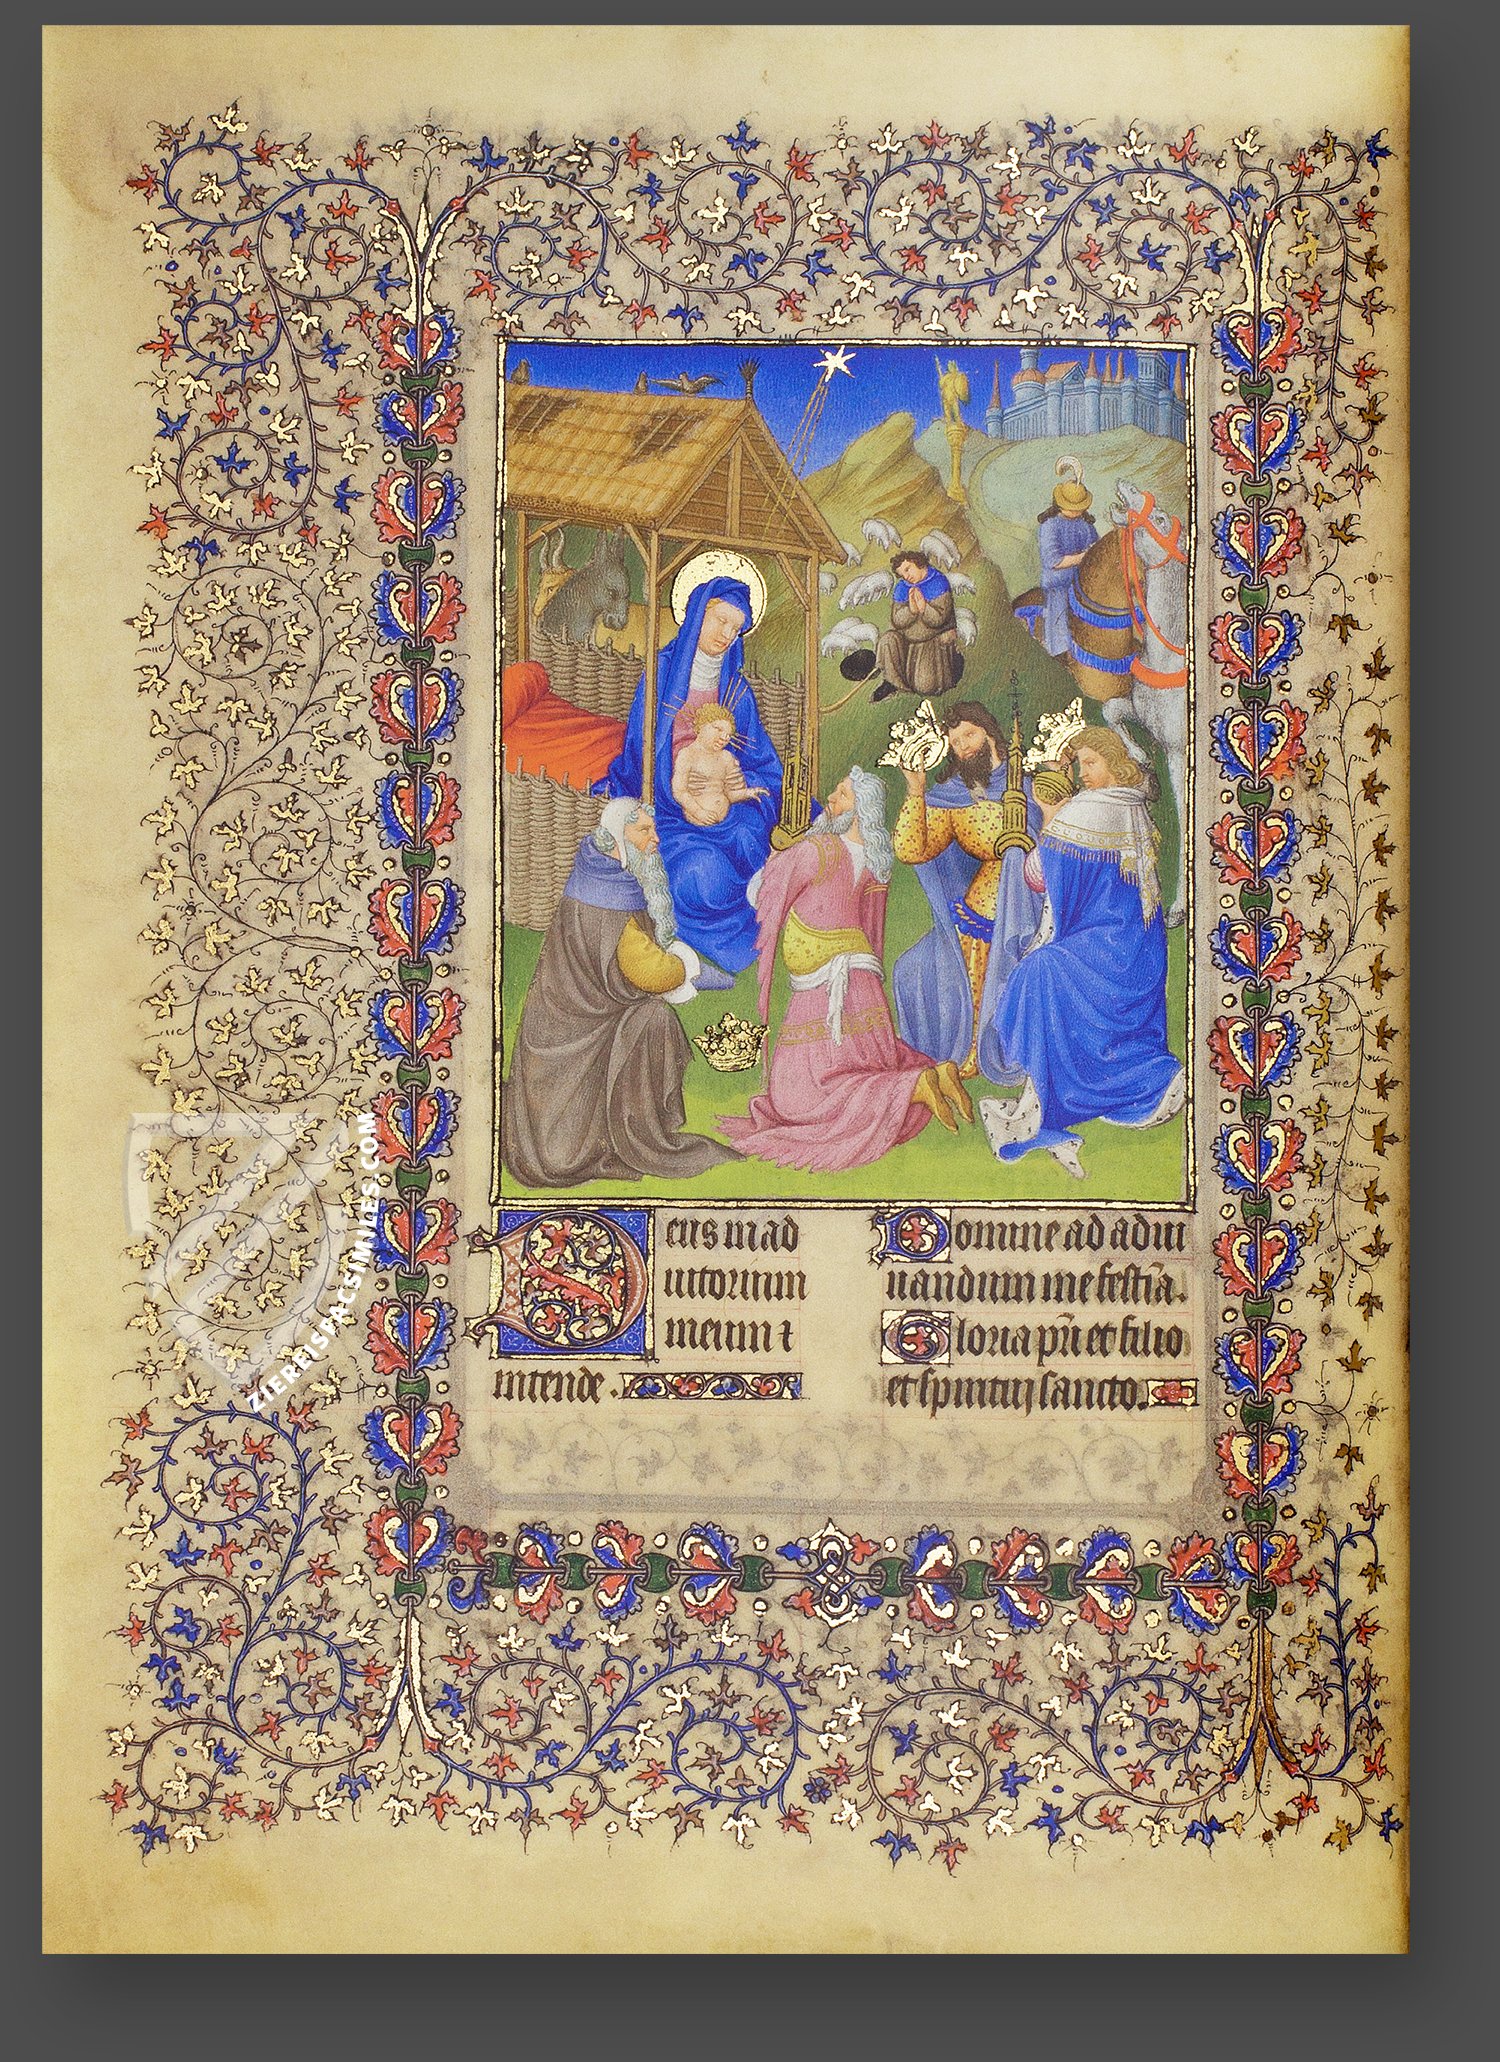 Deus in ad
iutorium
meum ⁊
intende.
Domine ad adiu
uandum me festīa.
Gloria pr̄i et filio
et spiritui sancto.
ZIEREISFACSIMILES.COM